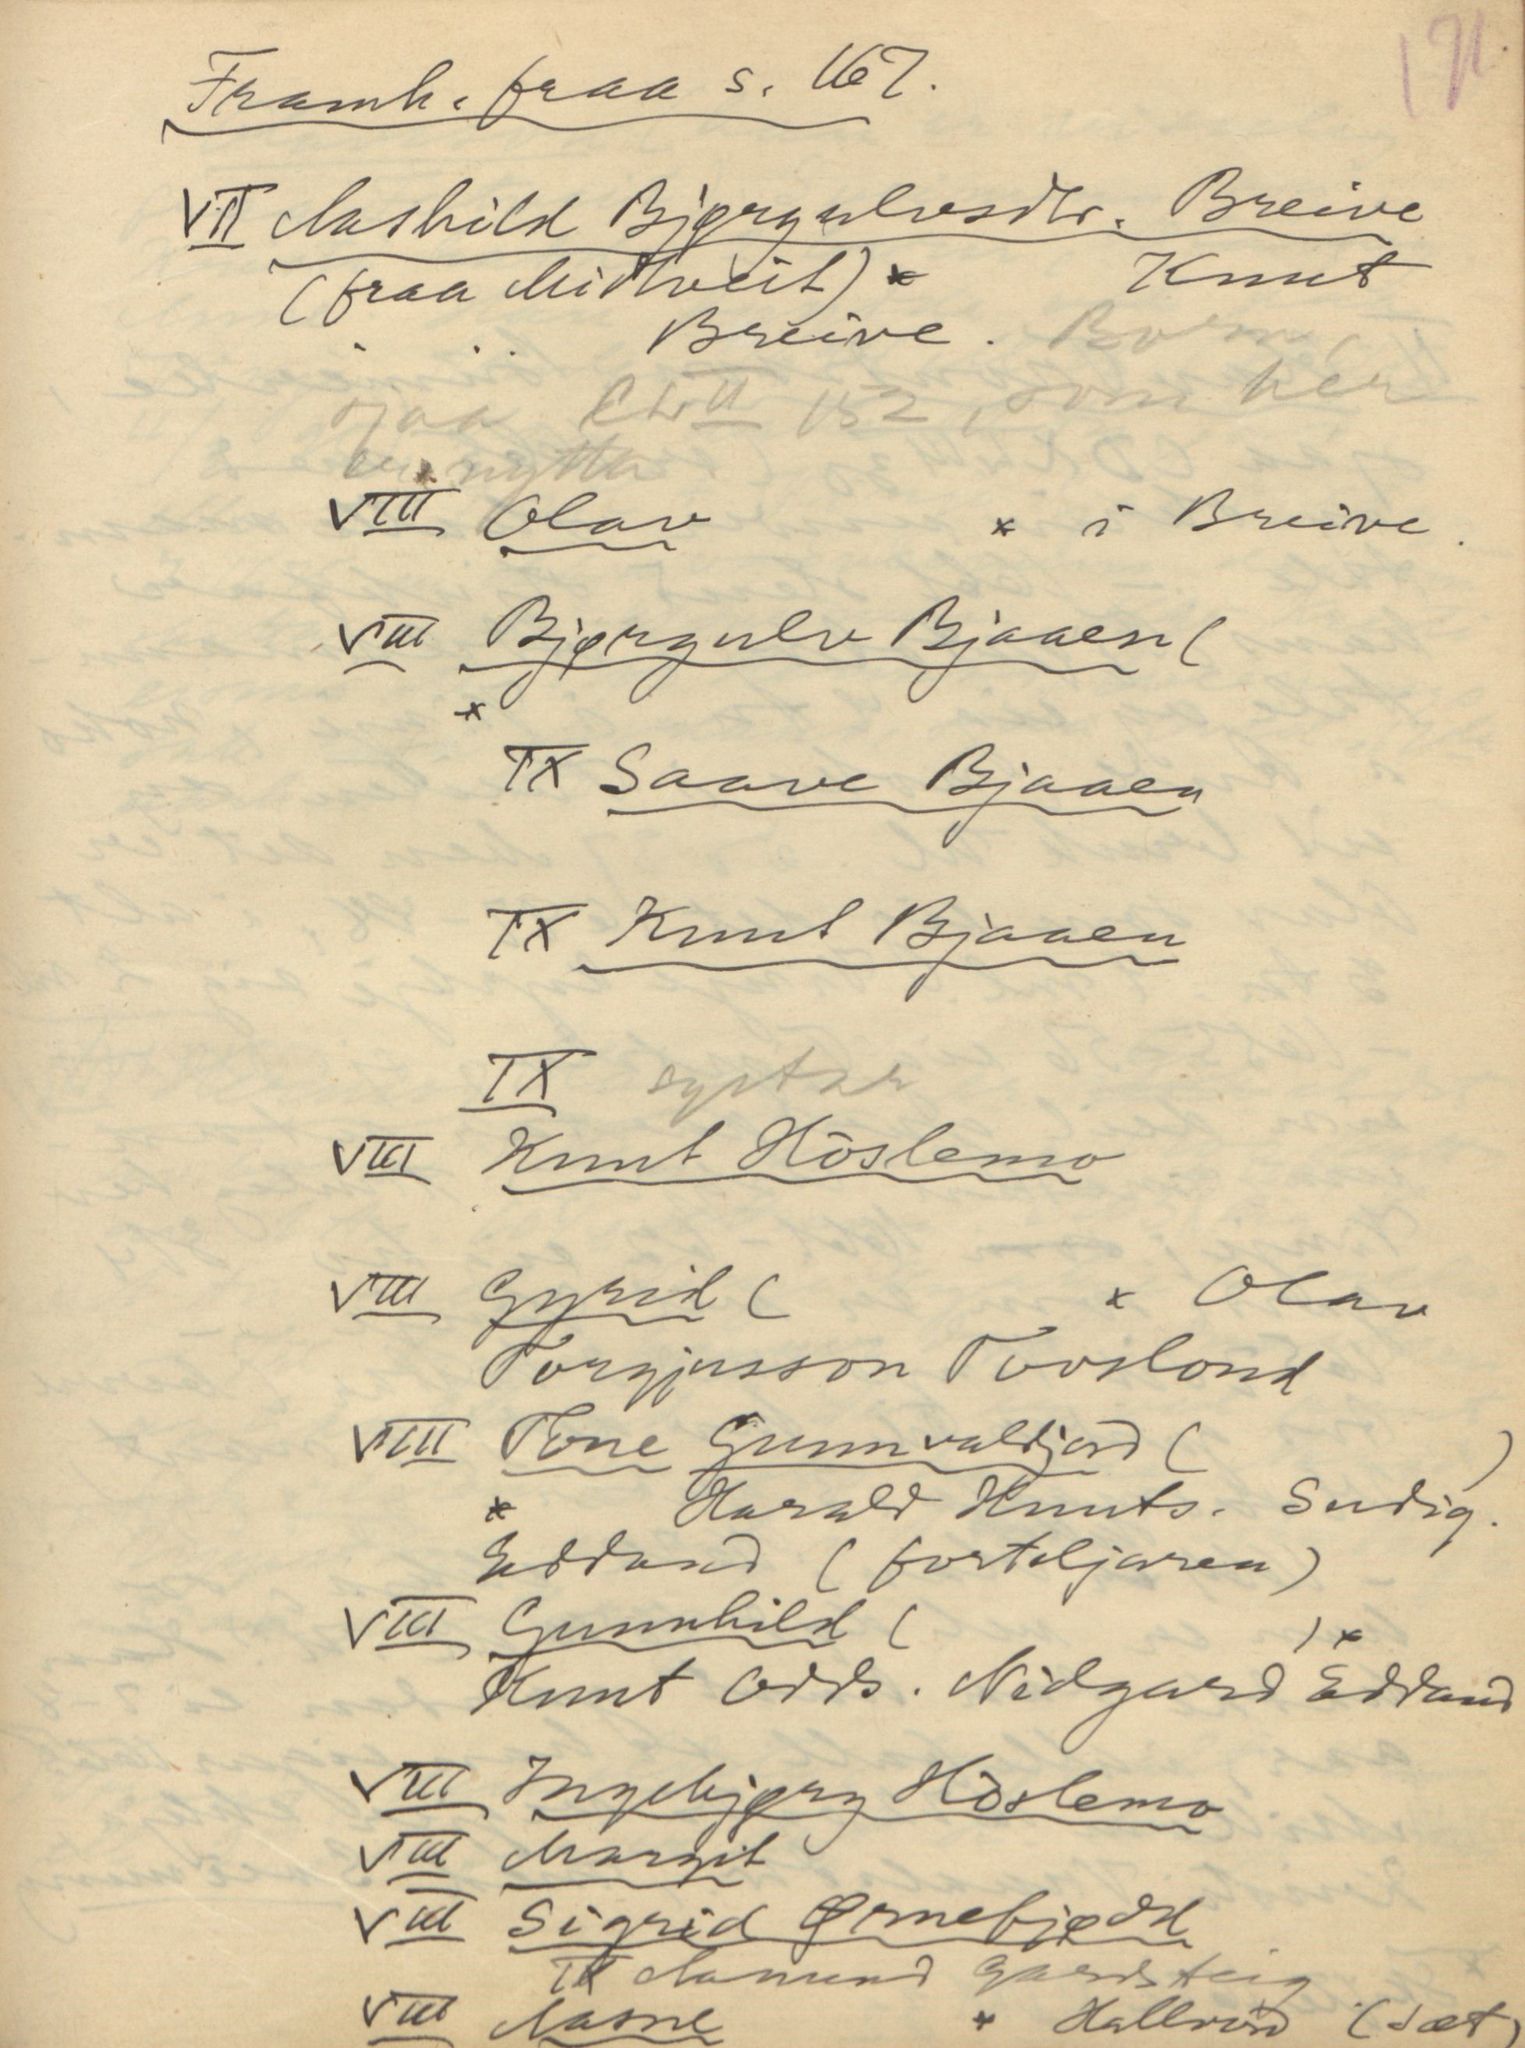 171.
Framh. fraa s. 167.
VII Aashild Bjørgulvsdtr. Breive
(fraa Midtveit) * Knut
Breive. Born,
sjaa Chr II 152, som her
er nytta
VIII Olav * i Breive.
VIII Bjørgulv Bjaaen (
*
IX Saave Bjaaen
IX Knut Bjaaen
IX syster
VIII Knut Hòslemo
VIII Gyrid ( * Olav
Torgjusson Tovslond
VIII Tone Gunnvaldjord ( )
* Harald Knuts. Sudig.
Eddand (forteljaren)
VIII Gunnhild ( ) *
Knut Odds. Nidgard Eddand
VIII Ingebjørg Hòslemo
VIII Margit
VIII Sigrid Ørnefjødd
IX Aamund Gardsteig
VIII Aasne * Hallvord (sæt)